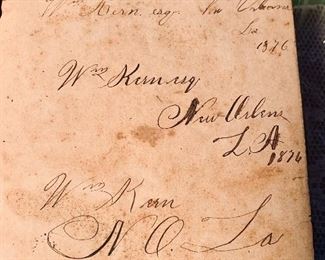 Wm Kern esqr New Orleans
La
1876
Wm Kern esq
New Orlens
L.A
1876
Wm Kern
N O La